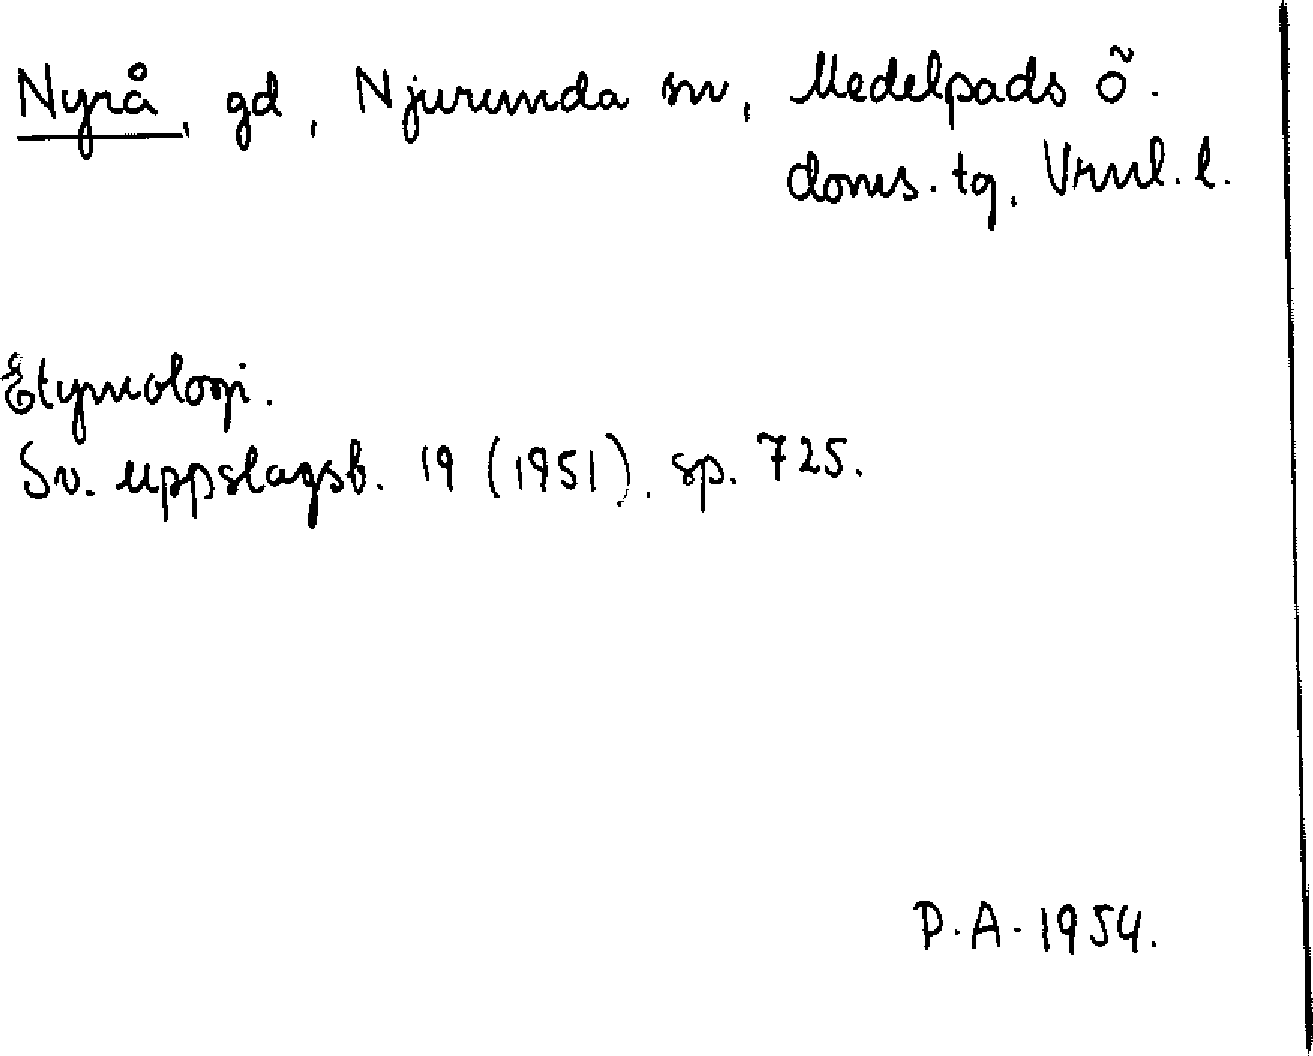 Nyrå, gd, Njurunda sn, Medelpads ö.
doms. tg, Vrnl. l.
Etymologi.
Sv. uppslagsb. 19 (1951), sp. 725.
P.A. 1954.